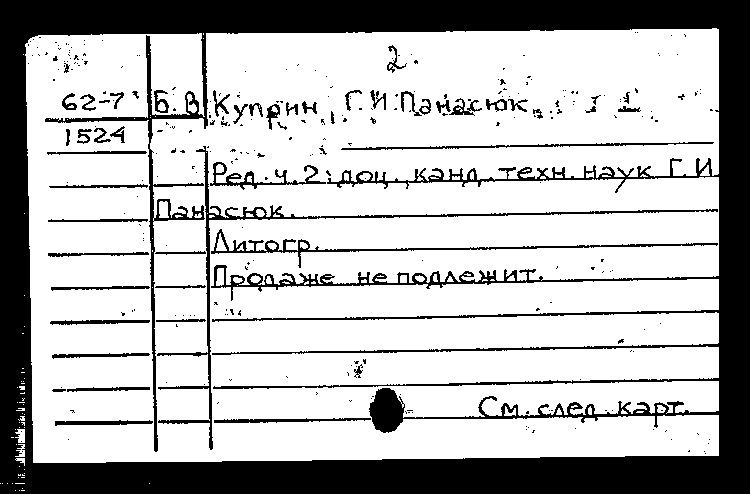 2.
62-7 Б. В. Куприн, Г. И. Панасюк.
1524
Ред. ч. 2: доц., канд. техн. наук Г. И.
Панасюк.
Литогр.
Продаже не подлежит.
См. след. карт.